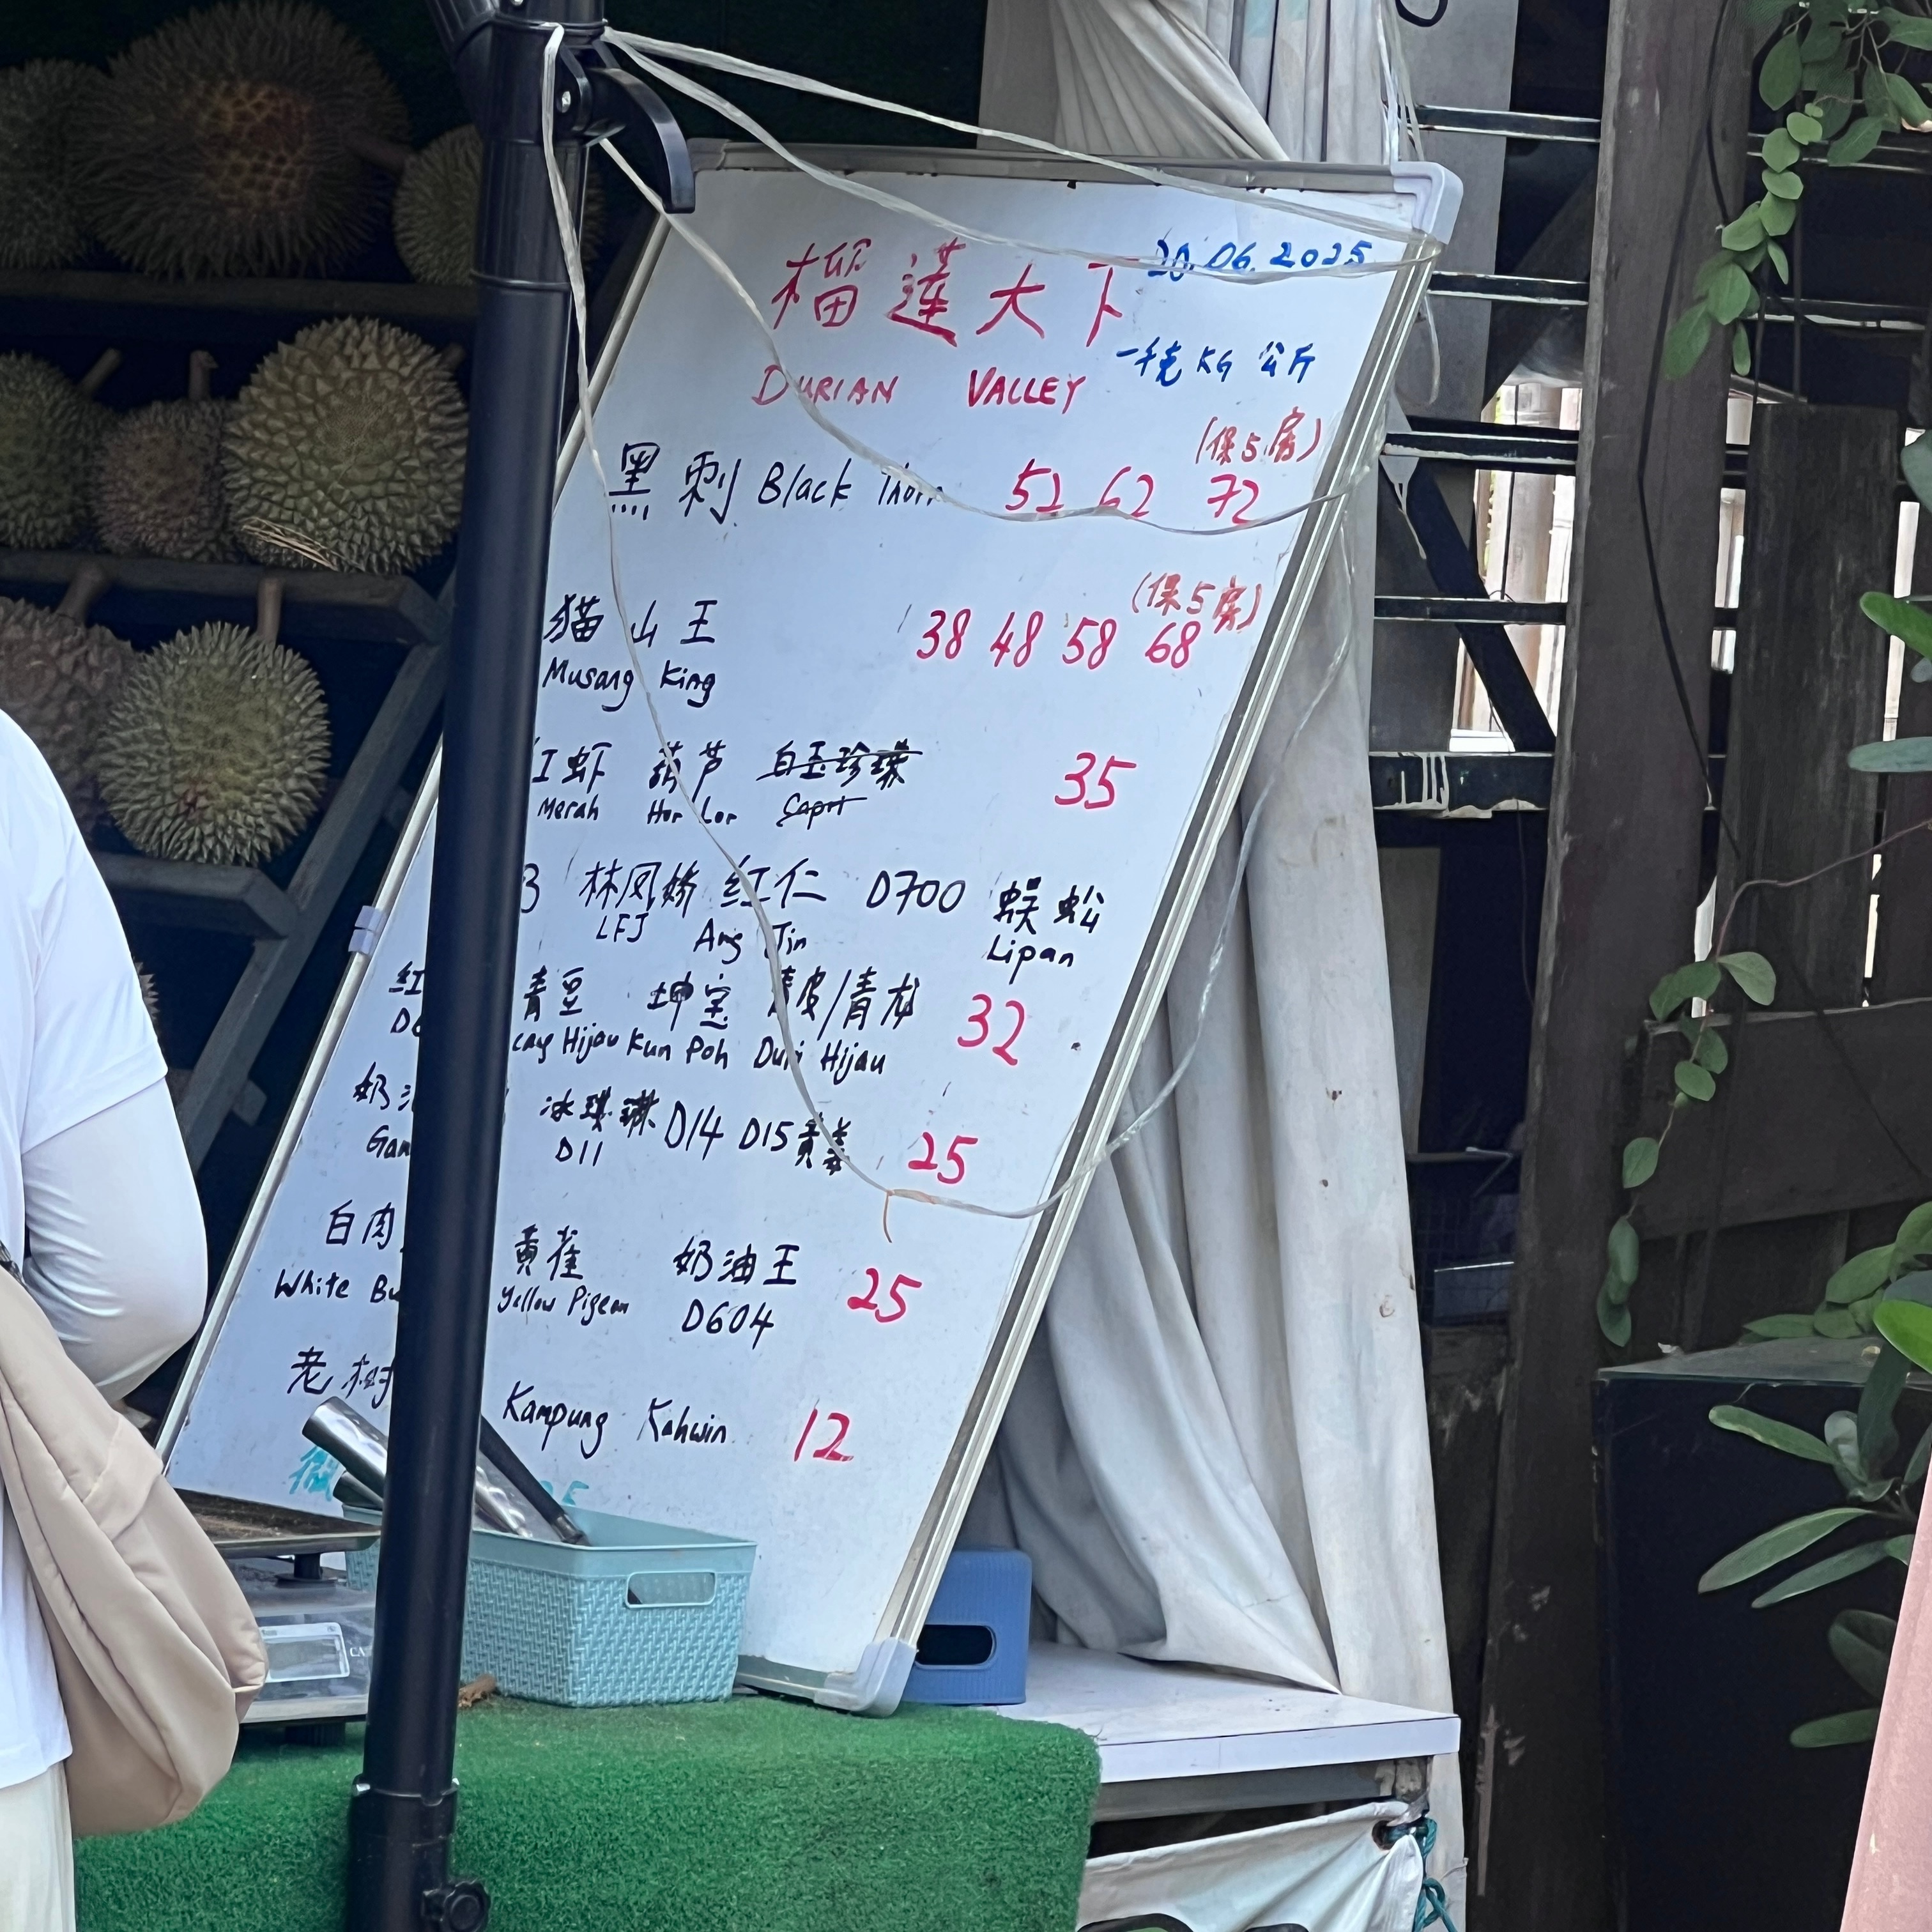 榴蓮天下 20.06.2025
DURIAN VALLEY 一千克 KG 公斤
(保5房)
黑刺 Black Thorn 52 62 72
(保5房)
猫山王 38 48 58 68
Musang King
虾 葫芦 白玉珍珠 35
Merah Hor Lor Capri
林凤娇 红仁 D700 蜈蚣
LFJ Ang Jin Lipan
红 青豆 坤宝 青皮/青龙 32
Hijau Kun Poh Duri Hijau
奶 冰琪琳 D14 D15 黄姜 25
D11
白肉 黄雀 奶油王 25
White Yellow Pigeon D604
老树 Kampung Kahwin 12